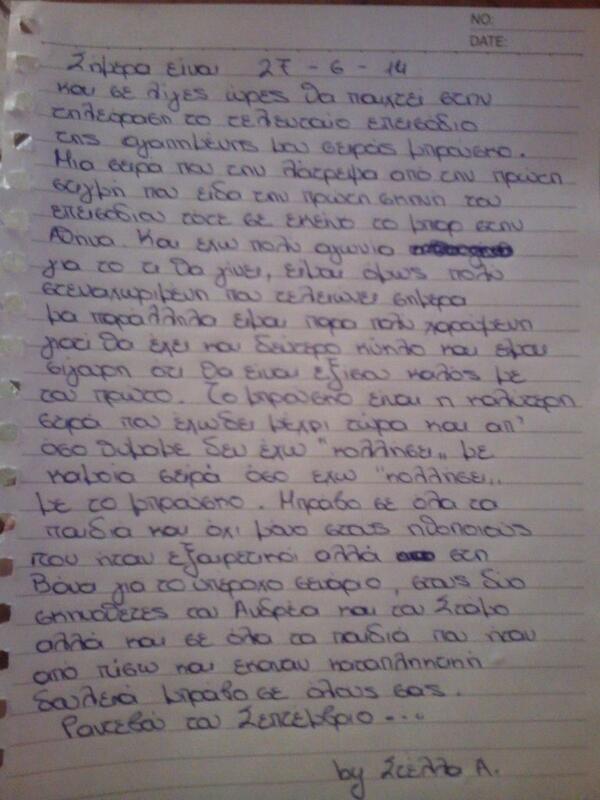 NO:
DATE:
Σήμερα είναι 27 - 6 - 14
και σε λίγες ώρες θα παιχτεί στην
τηλεόραση το τελευταίο επεισόδιο
της αγαπημένης μου σειράς μπρούσκο.
Μια σειρά που την λάτρεψα από την πρώτη
στιγμή που είδα την πρώτη σκηνή του
επεισοδίου τότε σε εκείνο το μπαρ στην
Αθήνα. Και έχω πολύ αγωνία
για το τι θα γίνει, είμαι όμως πολύ
στεναχωριμένη που τελειώνει σήμερα
μα παράλληλα είμαι παρα πολύ χαρούμενη
γιατί θα έχει και δεύτερο κύκλο και είμαι
σίγουρη οτι θα είναι εξίσου καλός με
τον πρώτο. Το μπρούσκο είναι η καλύτερη
σειρά που έχω δει μέχρι τώρα και απ'
όσο θυμάμε δεν έχω "κολλήσει" με
καμοία σειρά όσο έχω "κολλήσει"
με το μπρούσκο. Μπράβο σε όλα τα
παιδιά και όχι μόνο στους ηθοποιούς
που ήταν εξαιρετικοί αλλά στη
Βάνα για το υπέροχο σενάριο, στους δύο
σκηνοθέτες τον Ανδρέα και τον Στάμο
αλλά και σε όλα τα παιδιά που ήταν
από πίσω και έκαναν καταπληκτική
δουλειά μπράβο σε όλους σας.
Ραντεβού τον Σεπτέμβριο ...
by Στέλλα Α.